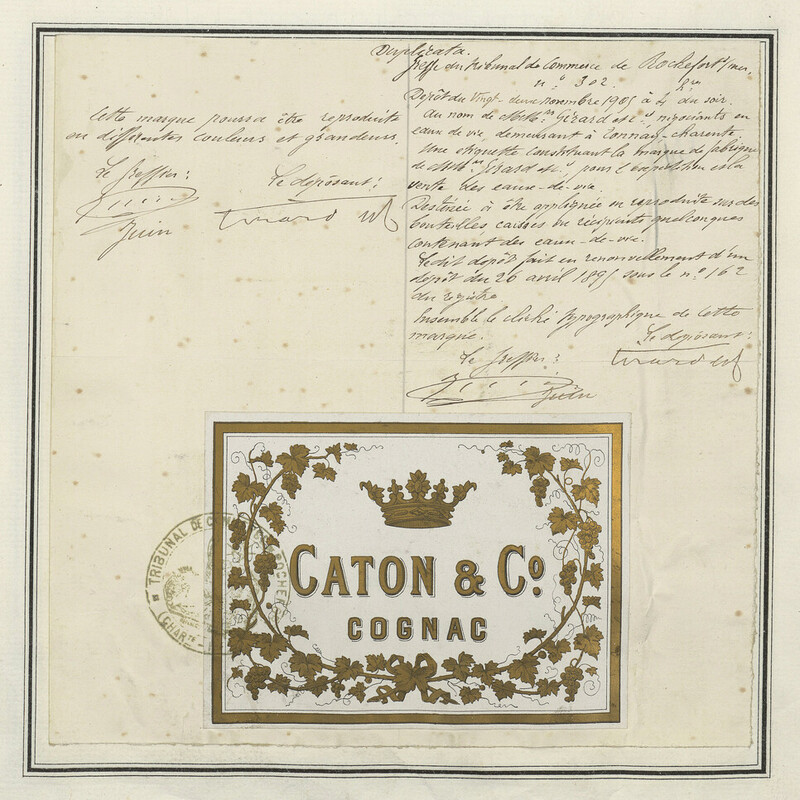 Duplicata.
Greffe du Tribunal de Commerce de Rochefort s/ mer,
n° 302.
Dépôt du Vingt-deux novembre 1905 à 4 du soir.
au nom de Girard et Cie négociants en
eaux de vie, demeurant à Tonnay-Charente.
Une étiquette constituant la marque de fabrique
de Girard et Cie, pour l'expédition et la
vente des eaux-de-vie.
Destinée à être appliquée ou reproduite sur des
bouteilles, caisses ou récipients quelconques
contenant des eaux-de-vie.
Le dit dépôt fait en renouvellement d'un
dépôt du 26 avril 1895 sous le n° 162
du registre
Ensemble le cliché typographique de cette
marque.
Le déposant:
Le Greffier:
Cette marque pourra être reproduite
en différentes couleurs et grandeurs.
Le Greffier:
Le déposant:
CATON & Co.
COGNAC
TRIBUNAL DE